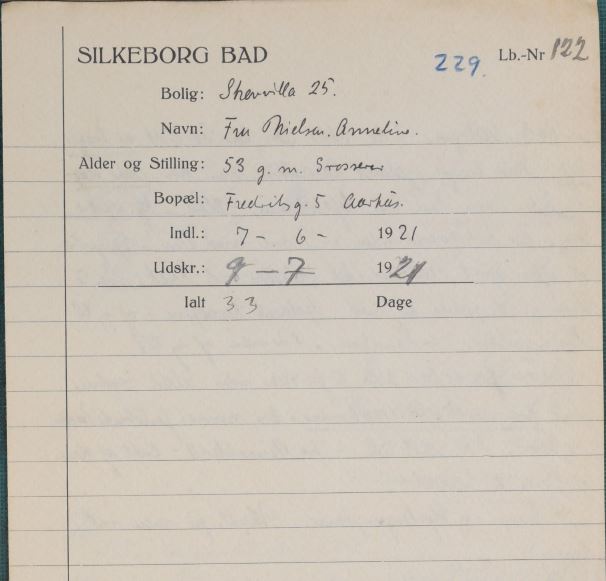 SILKEBORG BAD 229. Lb.-Nr 122
Bolig: 25.
Navn: Fru Nielsen. Anneline.
Alder og Stilling: 53 g. m. Grosserer
Bopæl: Fredriksg. 5 Aarhus.
Indl.: 7 - 6 - 1921
Udskr.: 9 - 7 1921
Ialt 33 Dage